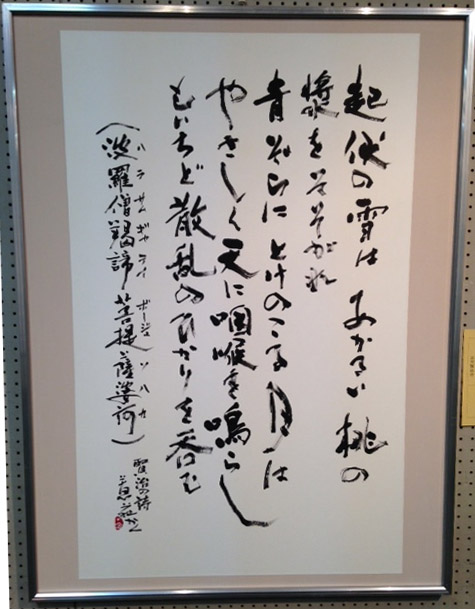 起伏の雪は あかるい桃の
漿をそそがれ
青ぞらにとけのこる月は
やさしく天に咽喉を鳴らし
もいちど散乱のひかりを呑む
ハラサムギャテイ ボージュ ソハカ
（波羅僧羯諦 菩提 薩婆訶）
賢治の詩